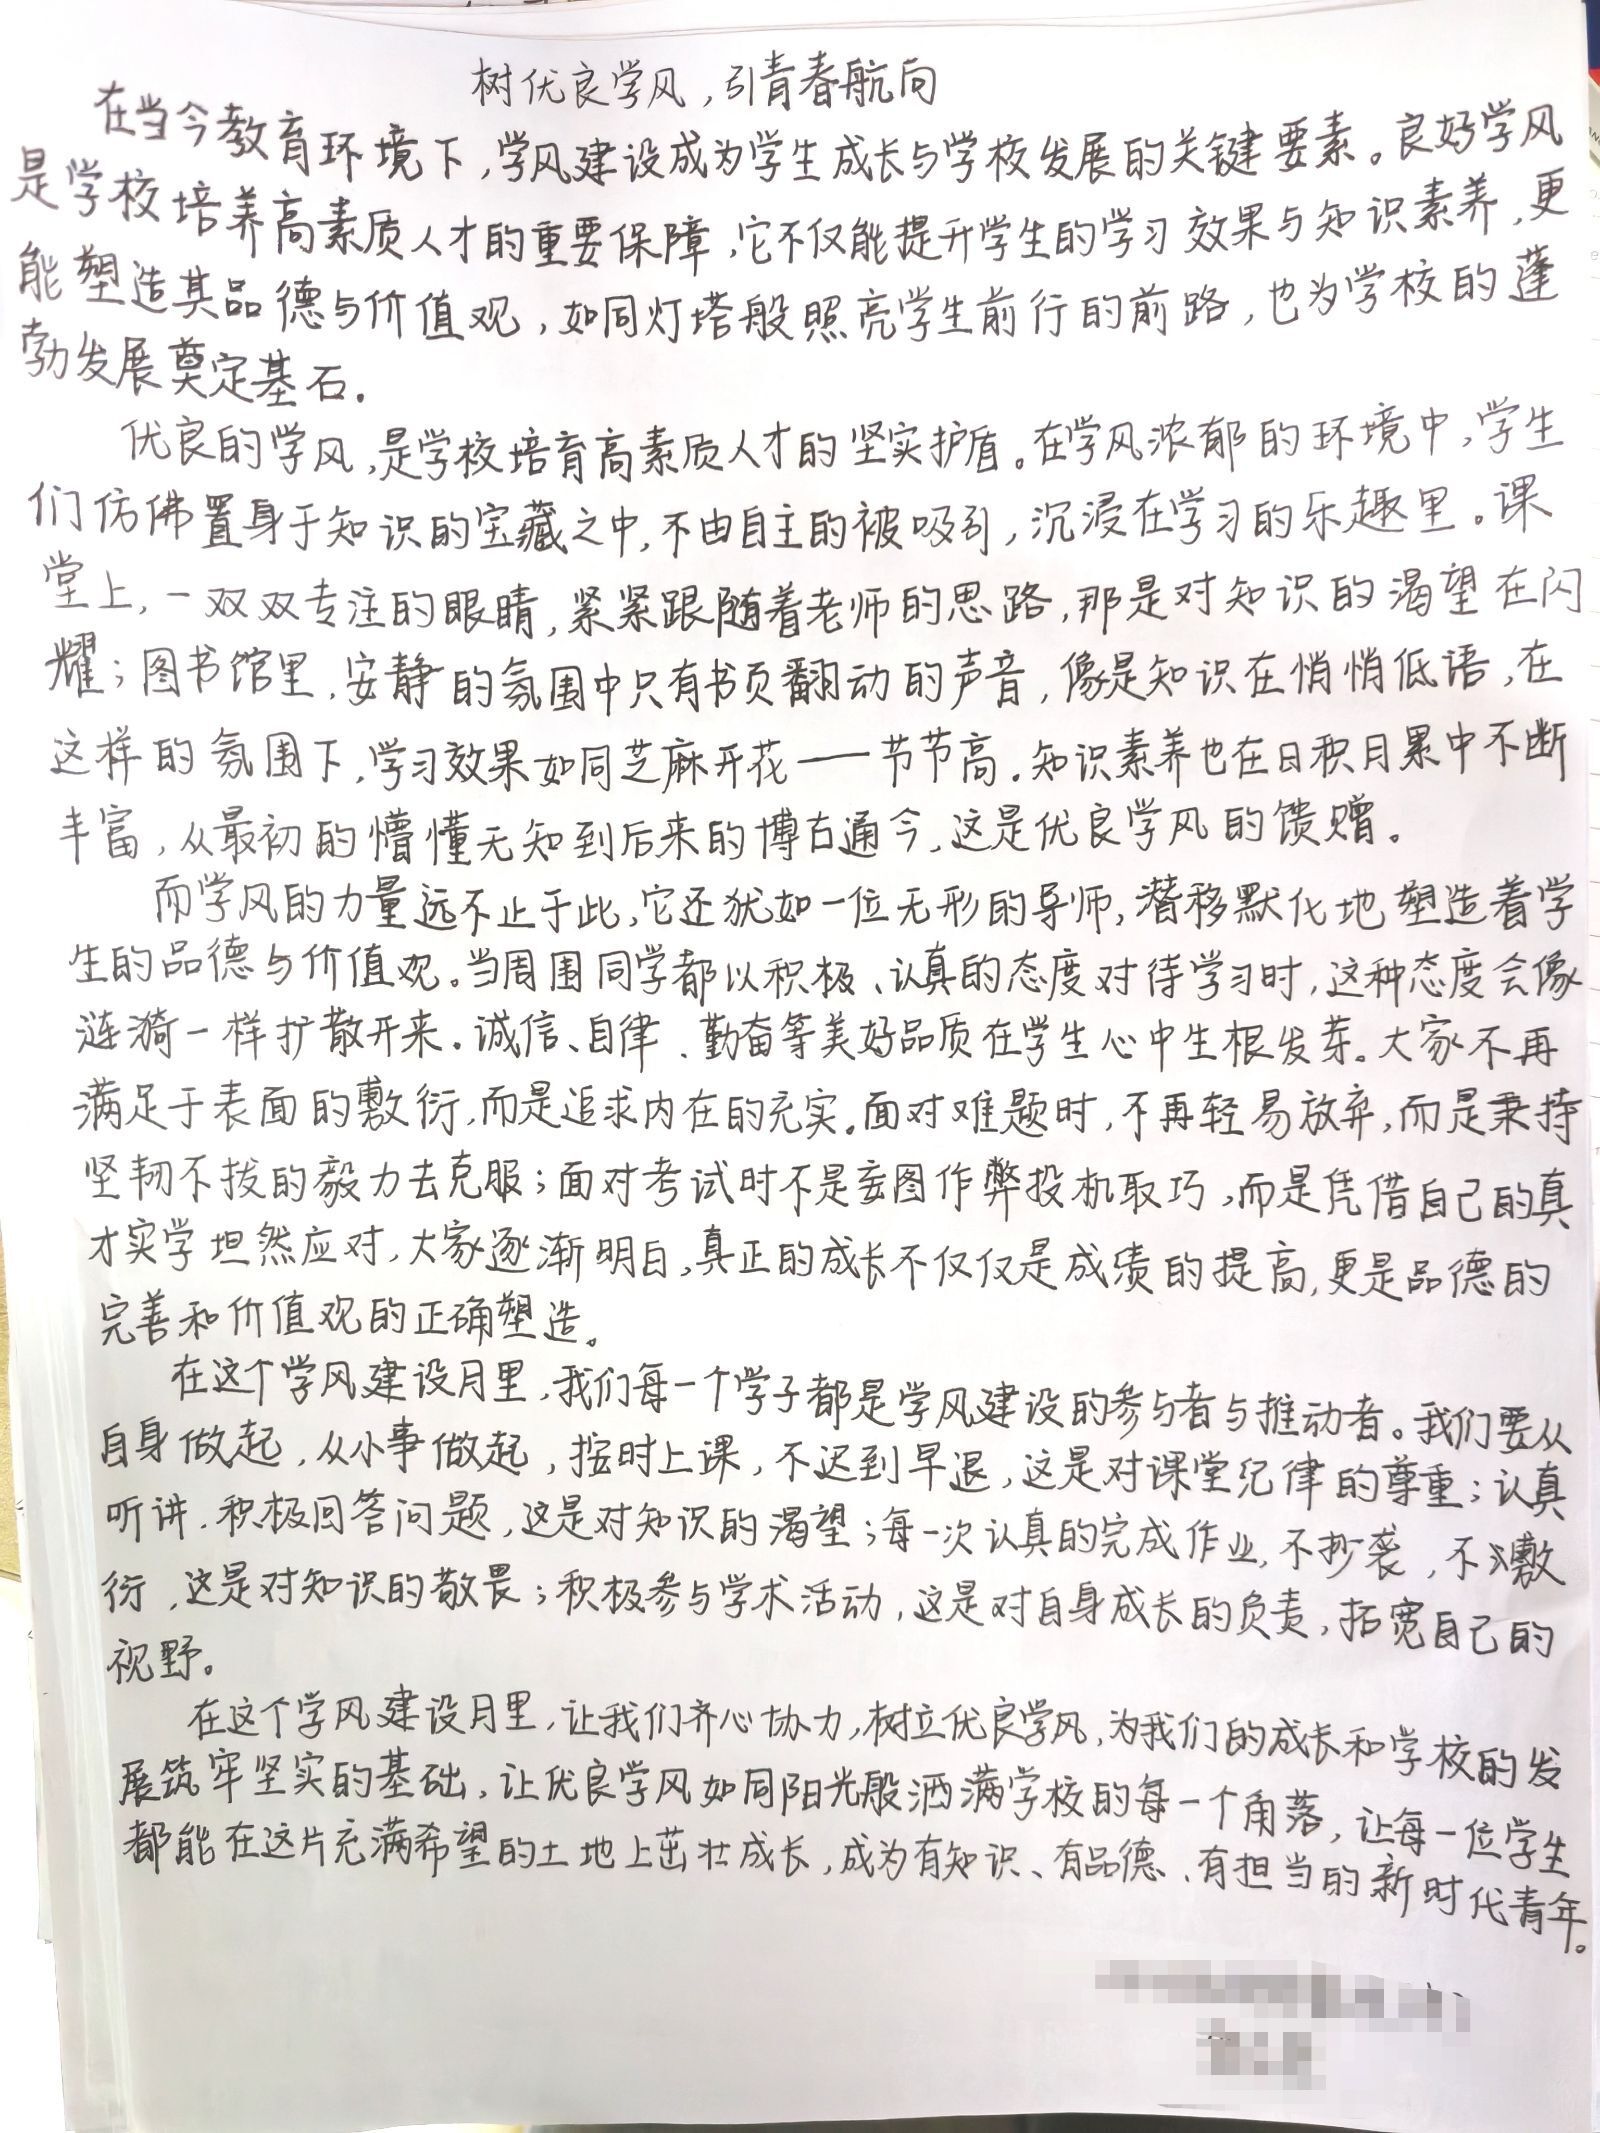 树优良学风，引青春航向
在当今教育环境下，学风建设成为学生成长与学校发展的关键要素。良好学风
是学校培养高素质人才的重要保障，它不仅能提升学生的学习效果与知识素养，更
能塑造其品德与价值观，如同灯塔般照亮学生前行的前路，也为学校的蓬
勃发展奠定基石。
优良的学风，是学校培育高素质人才的坚实护盾。在学风浓郁的环境中，学生
们仿佛置身于知识的宝藏之中，不由自主的被吸引，沉浸在学习的乐趣里。课
堂上，一双双专注的眼睛，紧紧跟随着老师的思路，那是对知识的渴望在闪
耀；图书馆里，安静的氛围中只有书页翻动的声音，像是知识在悄悄低语，在
这样的氛围下，学习效果如同芝麻开花——节节高。知识素养也在日积月累中不断
丰富，从最初的懵懂无知到后来的博古通今，这是优良学风的馈赠。
而学风的力量远不止于此，它还犹如一位无形的导师，潜移默化地塑造着学
生的品德与价值观。当周围同学都以积极、认真的态度对待学习时，这种态度会像
涟漪一样扩散开来。诚信、自律、勤奋等美好品质在学生心中生根发芽。大家不再
满足于表面的敷衍，而是追求内在的充实。面对难题时，不再轻易放弃，而是秉持
坚韧不拔的毅力去克服；面对考试时不是妄图作弊投机取巧，而是凭借自己的真
才实学坦然应对，大家逐渐明白，真正的成长不仅仅是成绩的提高，更是品德的
完善和价值观的正确塑造。
在这个学风建设月里，我们每一个学子都是学风建设的参与者与推动者。我们要从
自身做起，从小事做起，按时上课，不迟到早退，这是对课堂纪律的尊重；认真
听讲，积极回答问题，这是对知识的渴望；每一次认真的完成作业，不抄袭，不敷
衍，这是对知识的敬畏；积极参与学术活动，这是对自身成长的负责，拓宽自己的
视野。
在这个学风建设月里，让我们齐心协力，树立优良学风，为我们的成长和学校的发
展筑牢坚实的基础，让优良学风如同阳光般洒满学校的每一个角落，让每一位学生
都能在这片充满希望的土地上茁壮成长，成为有知识、有品德、有担当的新时代青年。